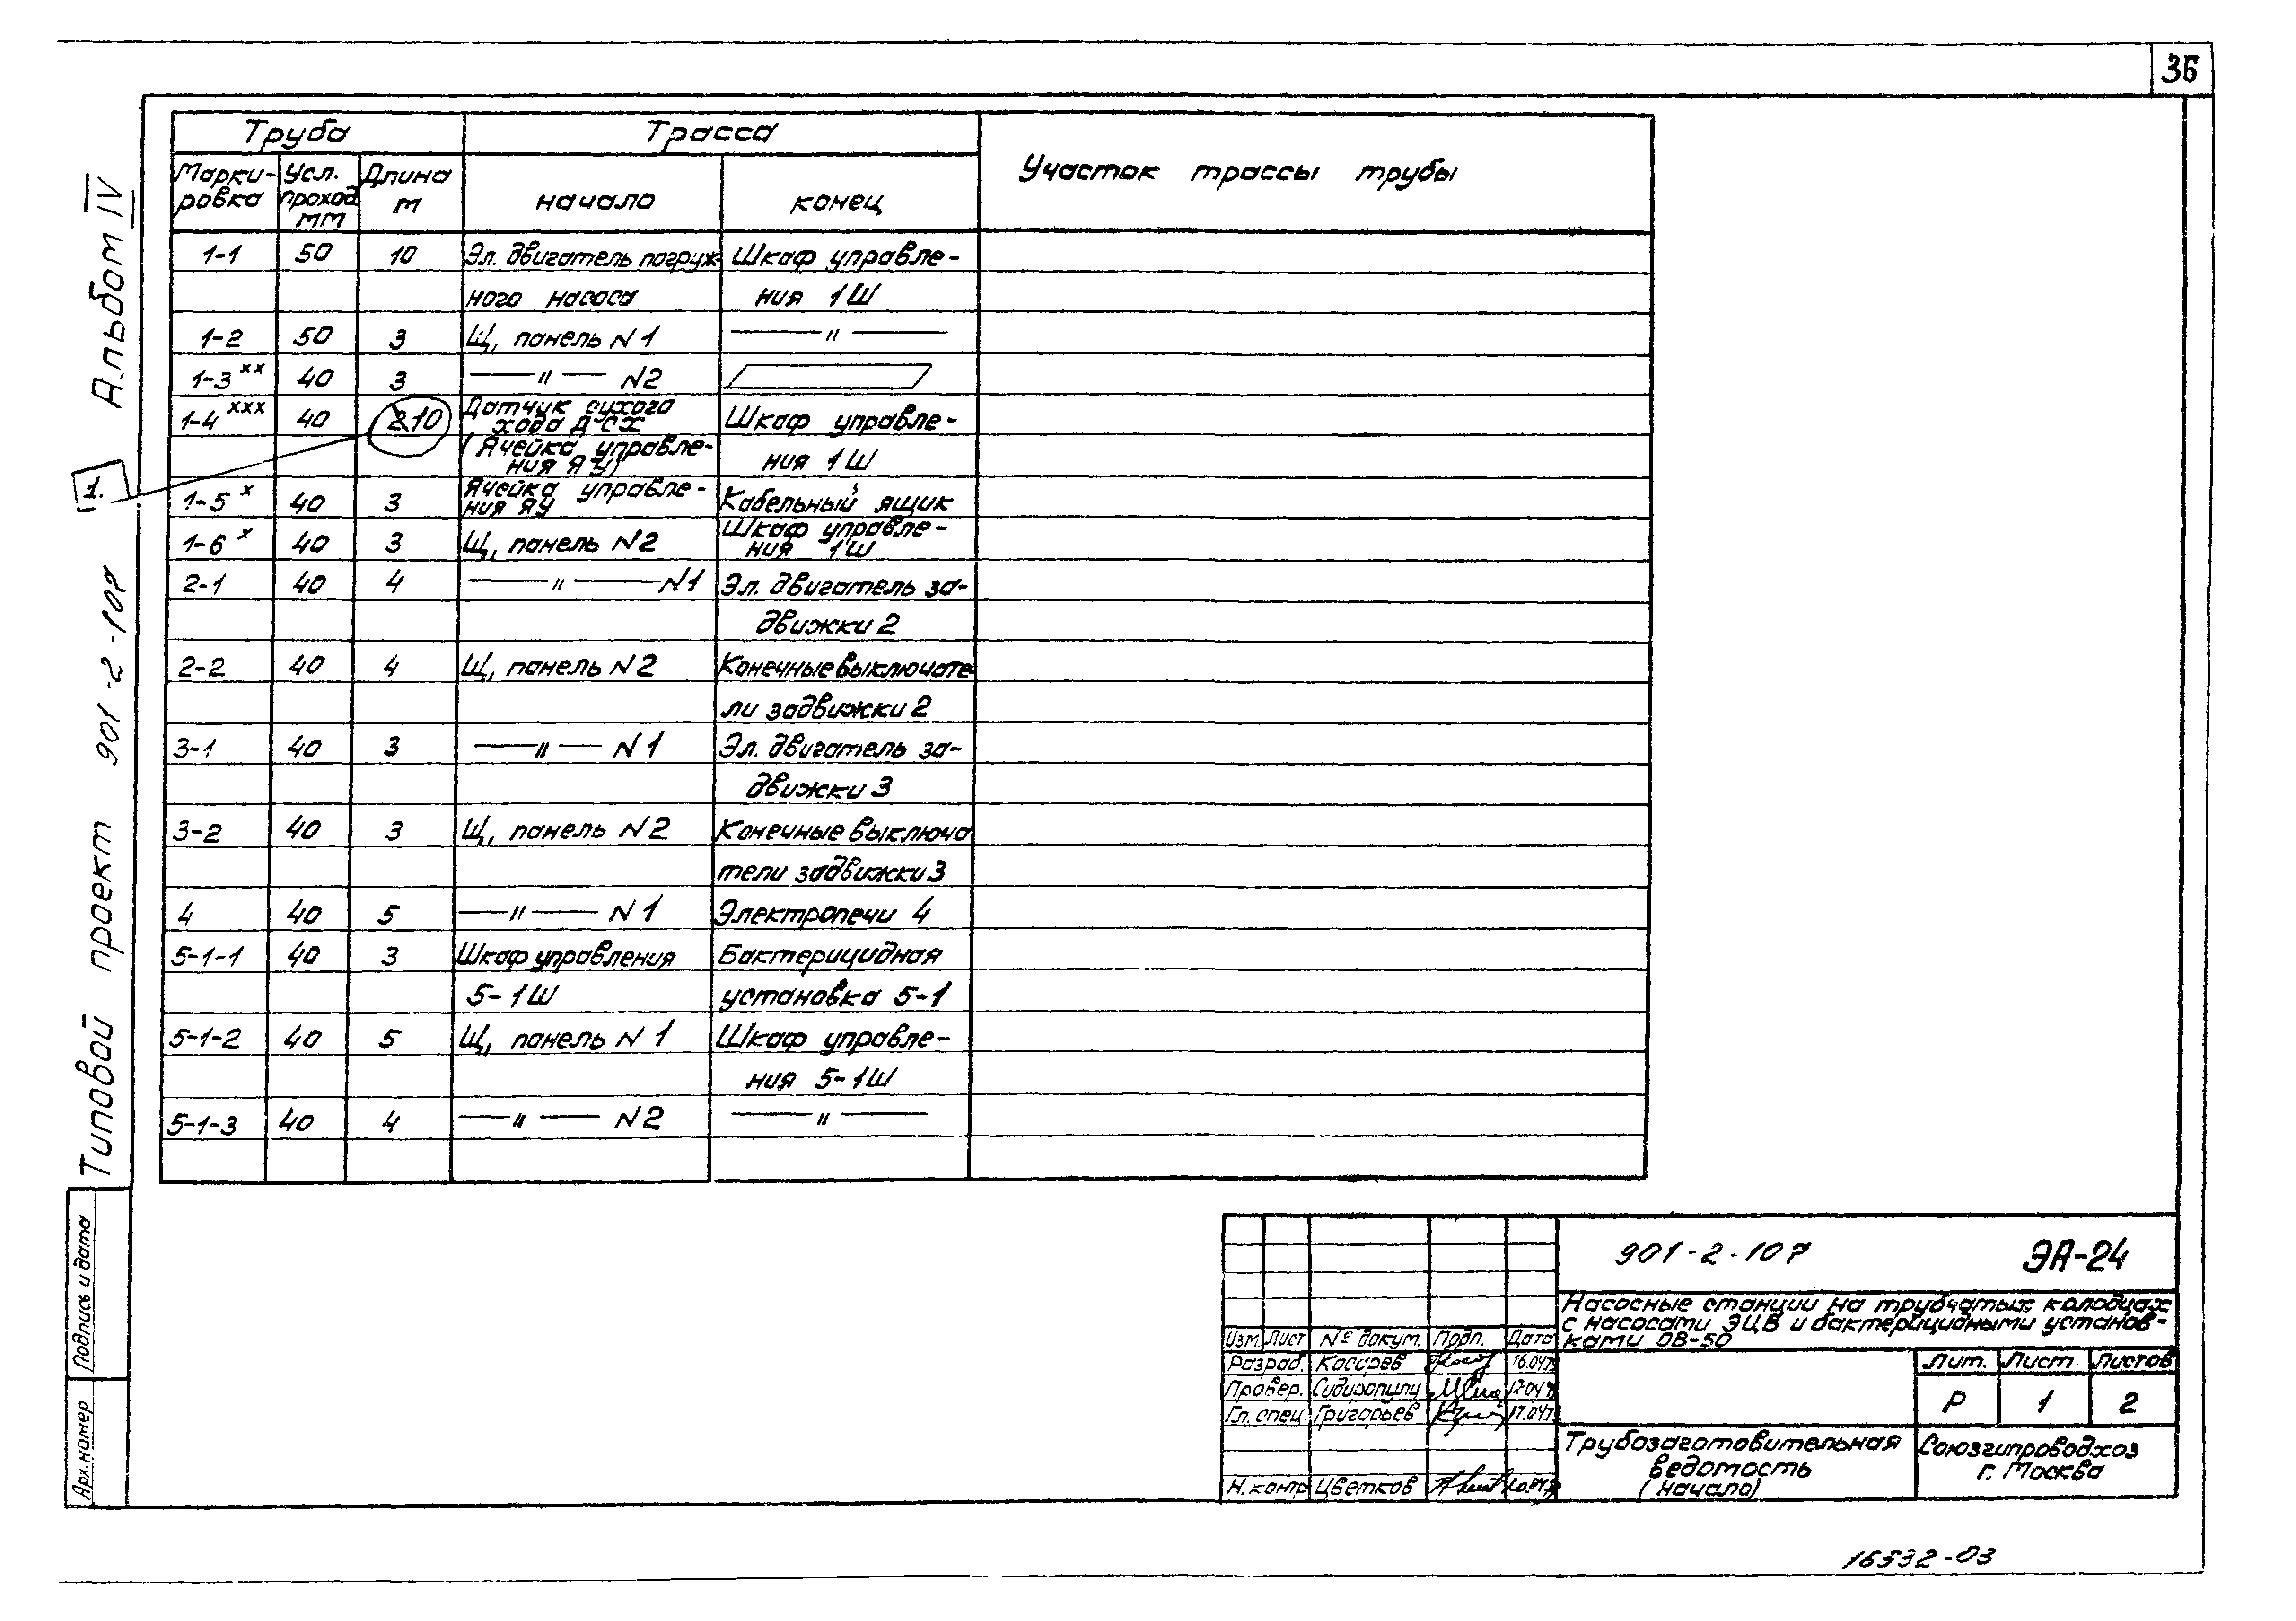 36
Альбом IV
Типовой проект 901-2-107
1.
Подпись и дата
Арх. номер
Труба Трасса Участок трассы трубы
Марки- Усл. Длина начало конец
ровка проход м
мм
1-1 50 10 Эл. двигатель погруж- Шкаф управле-
ного насоса ния 1Ш
1-2 50 3 Щ, панель N1 — " —
1-3 xx 40 3 — " — N2
1-4 xxx 40 10 Датчик сухого Шкаф управле-
хода ДСХ
(Ячейка управле- ния 1Ш
ния ЯУ)
1-5 x 40 3 Ячейка управле- Кабельный ящик
ния ЯУ
1-6 x 40 3 Щ, панель N2 Шкаф управле-
ния 1Ш
2-1 40 4 — " — N1 Эл. двигатель за-
движки 2
2-2 40 4 Щ, панель N2 Конечные выключате-
ли задвижки 2
3-1 40 3 — " — N1 Эл. двигатель за-
движки 3
3-2 40 3 Щ, панель N2 Конечные выключа
тели задвижки 3
4 40 5 — " — N1 Электропечи 4
5-1-1 40 3 Шкаф управления Бактерицидная
5-1Ш установка 5-1
5-1-2 40 5 Щ, панель N1 Шкаф управле-
ния 5-1Ш
5-1-3 40 4 — " — N2 — " —
901-2-107 ЭА-24
Насосные станции на трубчатых колодцах
с насосами ЭЦВ и бактерицидными установ-
ками ОВ-50
Изм. Лист № докум. Подп. Дата
Разраб. Косирев
Провер. Сидиропулу
Гл. спец. Григорьев
Н. контр Цветков
Лит. Лист Листов
Р 1 2
Трубозаготовительная
ведомость
(начало)
Союзгипроводхоз
г. Москва
16532-03